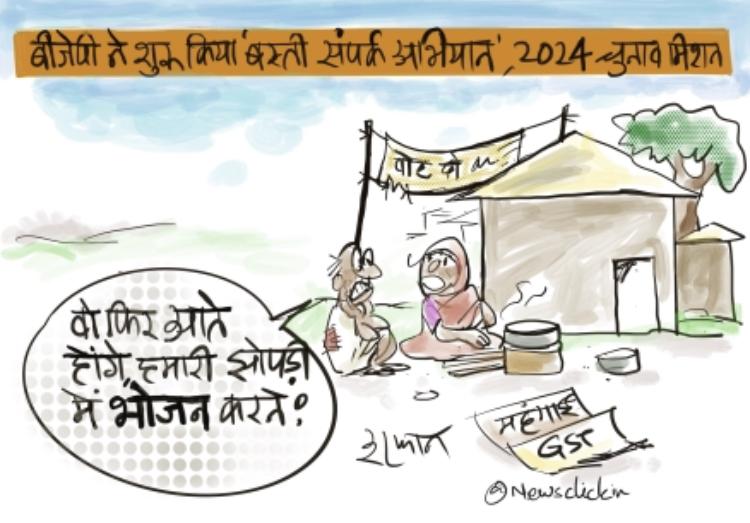 बीजेपी ने शुरू किया 'बस्ती संपर्क अभियान', 2024 चुनाव मिशन
वोट दो
वो फिर आते
होंगे, हमारी झोपड़ी
में भोजन करने?
इरफान
महंगाई
GST
@Newsclickin